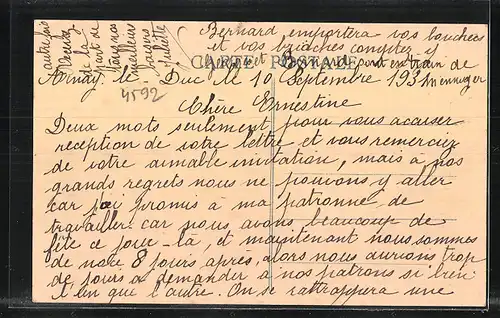 Bernard emportera vos bouchees
et vos brioches comptez y
CARTE POSTALE
et Bernard sont en train de
Arnay-le-Duc le 10 Septembre 1931
4592
Chère Ernestine
Deux mots seulement pour vous accuser
reception de votre lettre et vous remercier
de votre aimable invitation, mais à nos
grands regrets nous ne pouvons y aller
car j'ai promis à ma patronne de
travailler car nous avons beaucoup de
fête ce jour-là, et maintenant nous sommes
de noce 8 jours après, alors nous aurions trop
de jours à demander à nos patrons si bien
l'un que l'autre. On se rattrappera une
autrefois